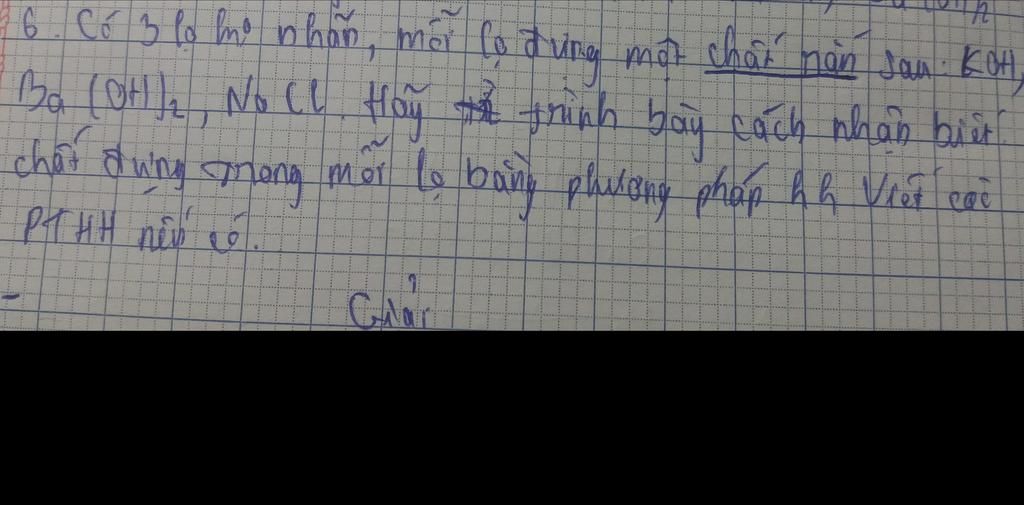 6. Có 3 lọ mơ nhãn, mỗi lọ đựng một chất nắn sau. KOH,
Ba(OH)₂, NaCl. Hãy trình bày cách nhận biết
chất đựng trong mỗi lọ bằng phương pháp hh Viết các
PTHH nếu có.
- Giải